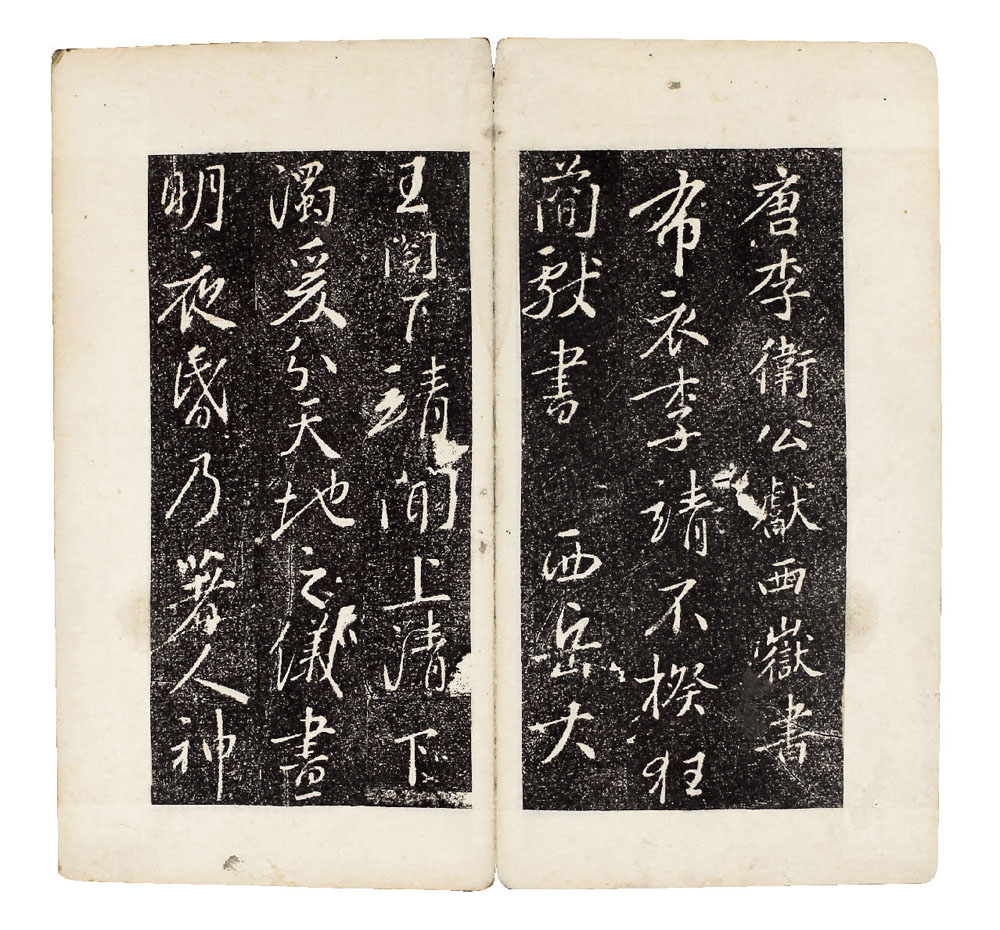 唐李衛公獻西嶽書
布衣李靖不揆狂
簡獻書 西岳大
王閣下靖聞上清下
濁爰分天地之儀晝
明夜昏乃著人神